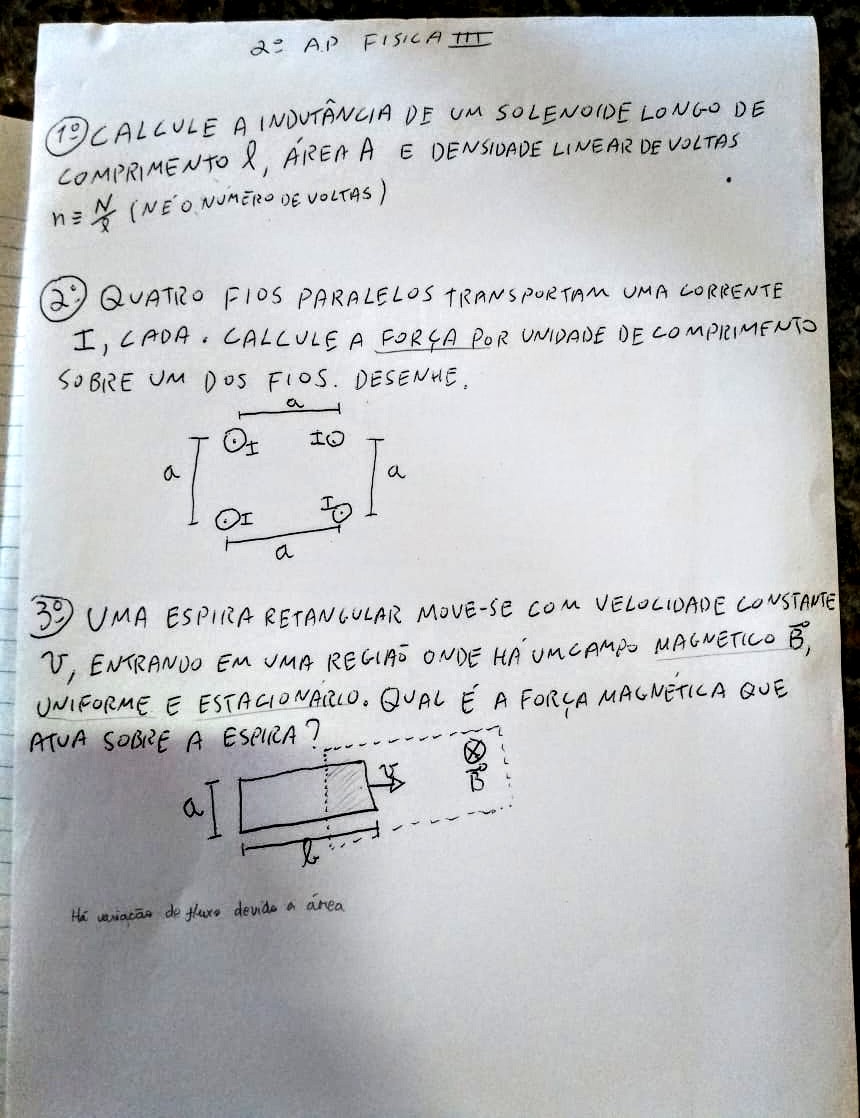 2º A.P FISICA III
1º) CALCULE A INDUTÂNCIA DE UM SOLENOIDE LONGO DE
COMPRIMENTO l, ÁREA A E DENSIDADE LINEAR DE VOLTAS
n ≡ N/l (N É O NÚMERO DE VOLTAS)
2º) QUATRO FIOS PARALELOS TRANSPORTAM UMA CORRENTE
I, CADA. CALCULE A FORÇA POR UNIDADE DE COMPRIMENTO
SOBRE UM DOS FIOS. DESENHE.
a
I I
a a
I I
a
3º) UMA ESPIRA RETANGULAR MOVE-SE COM VELOCIDADE CONSTANTE
V, ENTRANDO EM UMA REGIÃO ONDE HÁ UM CAMPO MAGNÉTICO B⃗,
UNIFORME E ESTACIONÁRIO. QUAL É A FORÇA MAGNÉTICA QUE
ATUA SOBRE A ESPIRA?
a v B⃗
b
Há variação de fluxo devido a área